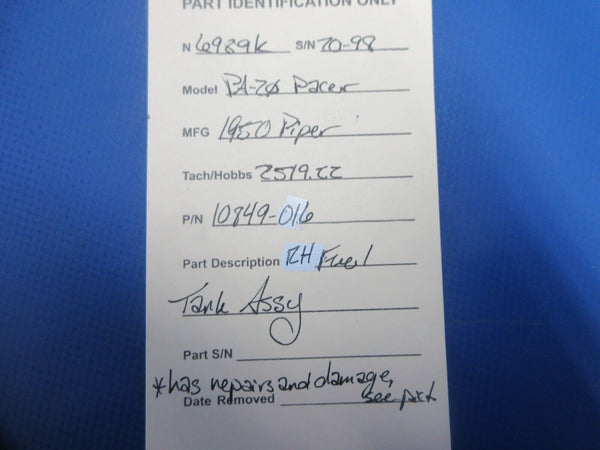 PART IDENTIFICATION ONLY
N 6939K S/N 20-98
Model PA-20 Pacer
MFG 1950 Piper
Tach/Hobbs 2519.22
P/N 10849-016
Part Description RH Fuel
Tank Assy
Part S/N
*has repairs and damage,
Date Removed see part